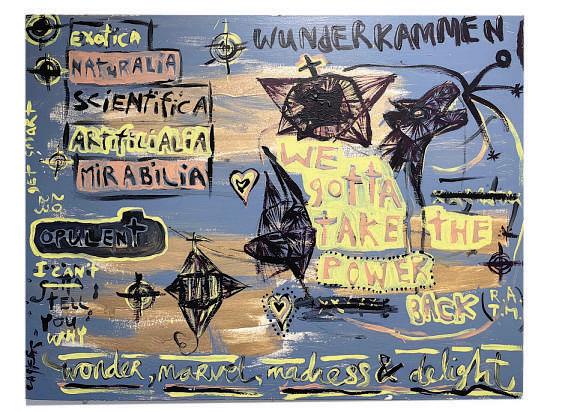 EXOTICA
NATURALIA
SCIENTIFICA
ARTIFICIALIA
MIRABILIA
WUNDERKAMMEN
WE
gotta
TAKE THE
POWER
BACK (R.A.
T.M.)
GET SMART
20
23
OPULENT
I CAN'T
TELL
YOU
WHY
wonder, marvel, madness & delight